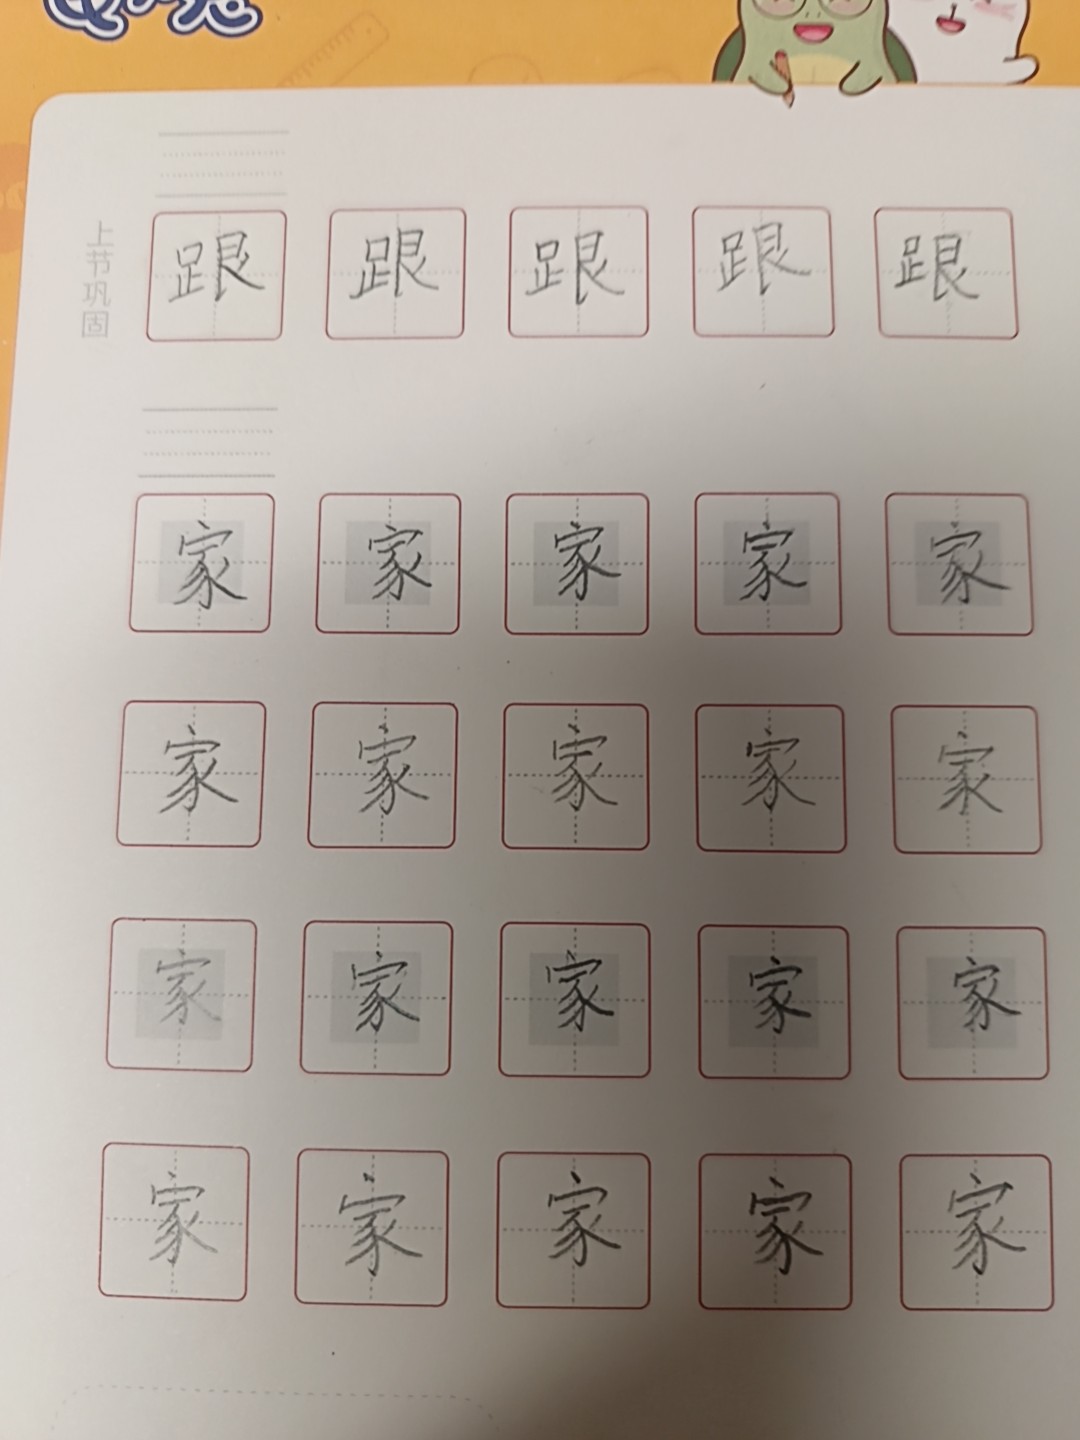 上节巩固
跟 跟 跟 跟 跟
家 家 家 家 家
家 家 家 家 家
家 家 家 家 家
家 家 家 家 家